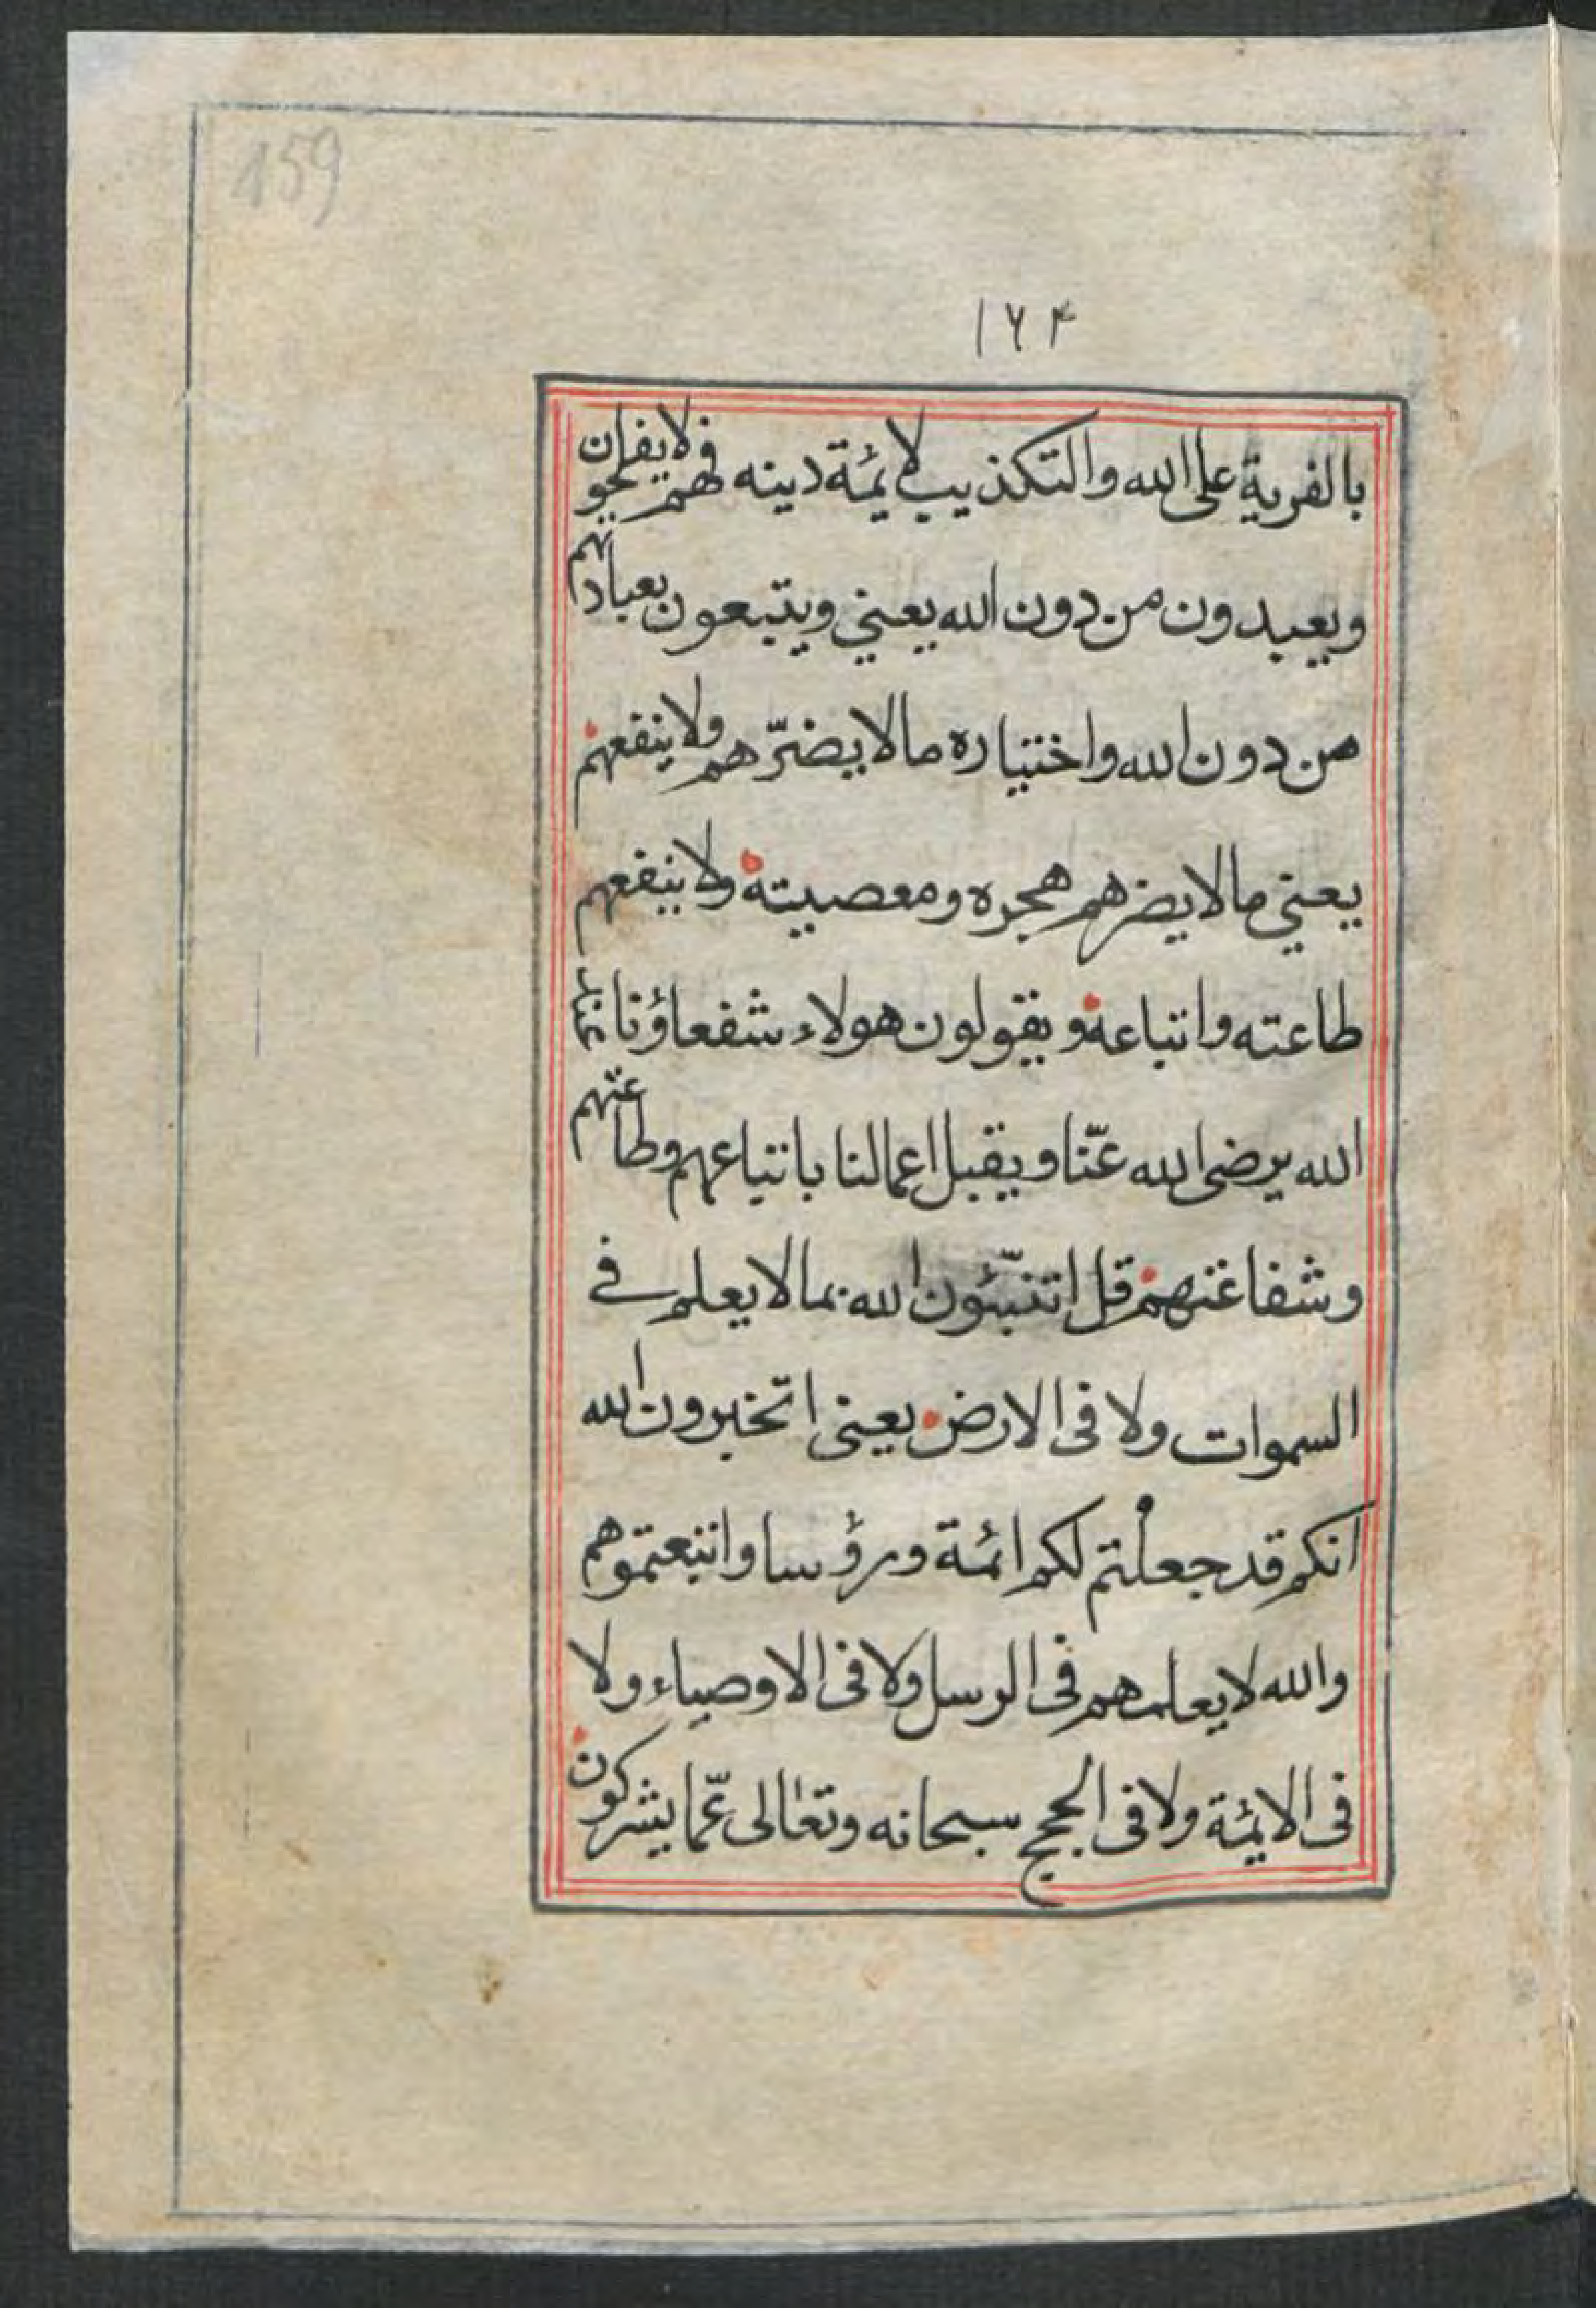 159
١٦٤
بالفرية على الله والتكذيب لايمة دينه فهم لا يفلحون
ويعبدون من دون الله يعني ويتبعون بعبادتهم
من دون الله واختياره ما لا يضرّهم ولا ينفعهم
يعني ما لا يضرهم هجره ومعصيته ولا ينفعهم
طاعته واتباعه ويقولون هولاء شفعاؤنا عند
الله يرضى الله عنّا ويقبل اعمالنا باتباعهم وطاعتهم
وشفاعتهم قل اتنبّئون الله بما لا يعلم في
السموات ولا في الارض يعني اتخبرون الله
انكم قد جعلتم لكم ائمة ورؤسا واتبعتموهم
والله لا يعلمهم في الرسل ولا في الاوصياء ولا
في الايمة ولا في الحجج سبحانه وتعالى عمّا يشركون